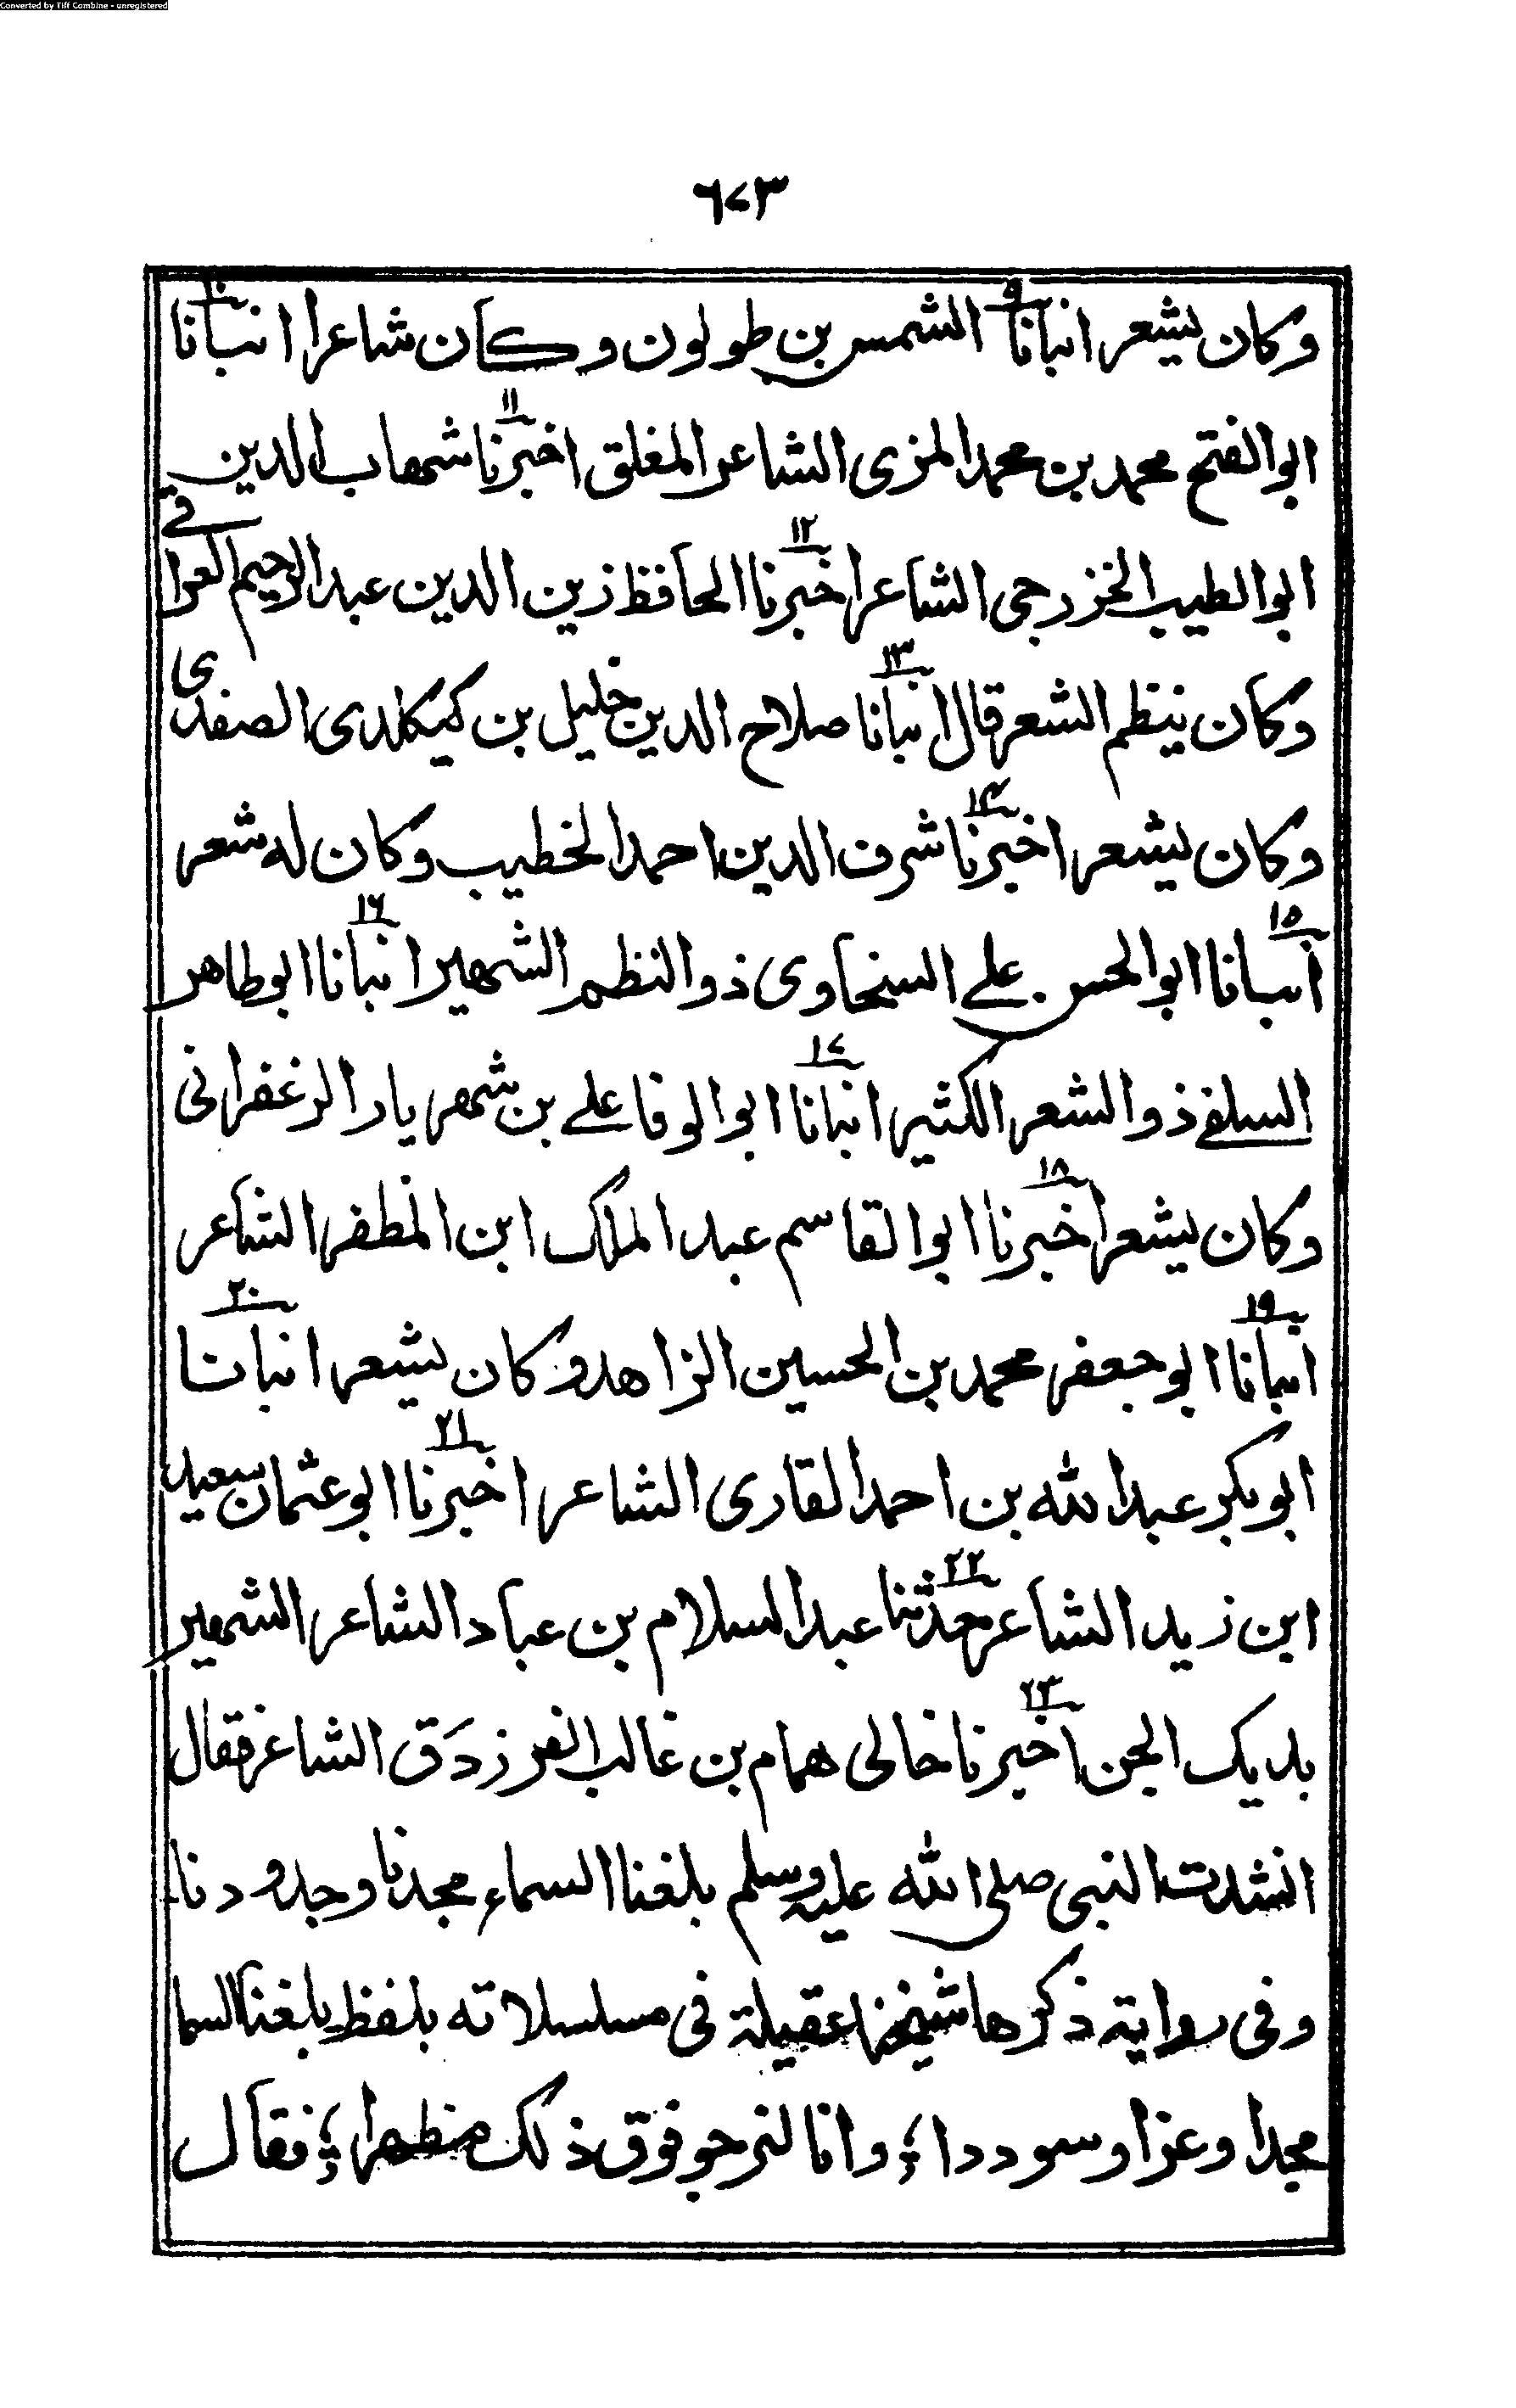 Converted by Tiff Combine - unregistered
٦٧٣
وكان يشعر انبانا ٩ الشمس بن طولون وكان شاعرا انبانا ١٠
ابوالفتح محمد بن محمد المزى الشاعر المغلق اخبرنا ١١ شهاب الدين
ابوالطيب الخزرجى الشاعر اخبرنا ١٢ الحافظ زين الدين عبدالرحيم العراقے
وكان ينظم الشعر قال انبانا ١٣ صلاح الدين خليل بن كيكلدى الصفدى
وكان يشعر اخبرنا ١٤ شرف الدين احمد الخطيب وكان له شعر
انبانا ١٥ ابوالحسن علے السنحاوى ذوالنظم الشهير انبانا ١٦ ابوطاهر
السلفے ذوالشعر الكثير انبانا ١٧ ابوالوفا علے بن شهريار الزغفرانى
وكان يشعر اخبرنا ١٨ ابوالقاسم عبدالملك ابن المظفر الشاعر
انبانا ١٩ ابوجعفر محمد بن الحسين الزاهد وكان يشعر انبانا ٢٠
ابوبكر عبدالله بن احمد القارى الشاعر اخبرنا ٢١ ابوعثمان سعيد
ابن زيد الشاعر حدثنا ٢٢ عبدالسلام بن عباد الشاعر الشهير
بديك الجن اخبرنا ٢٣ خالى همام بن غالب الفرزدَق الشاعر فقال
انشدت النبى صلى الله عليه وسلم بلغنا السماء مجدنا وجدودنا
وفى رواية ذكرها شيخنا عقيلة فى مسلسلاته بلفظ بلغنا السما
مجدا وعزا وسوددا؛ وانا لنرجو فوق ذلك مظهرا؛ فقال